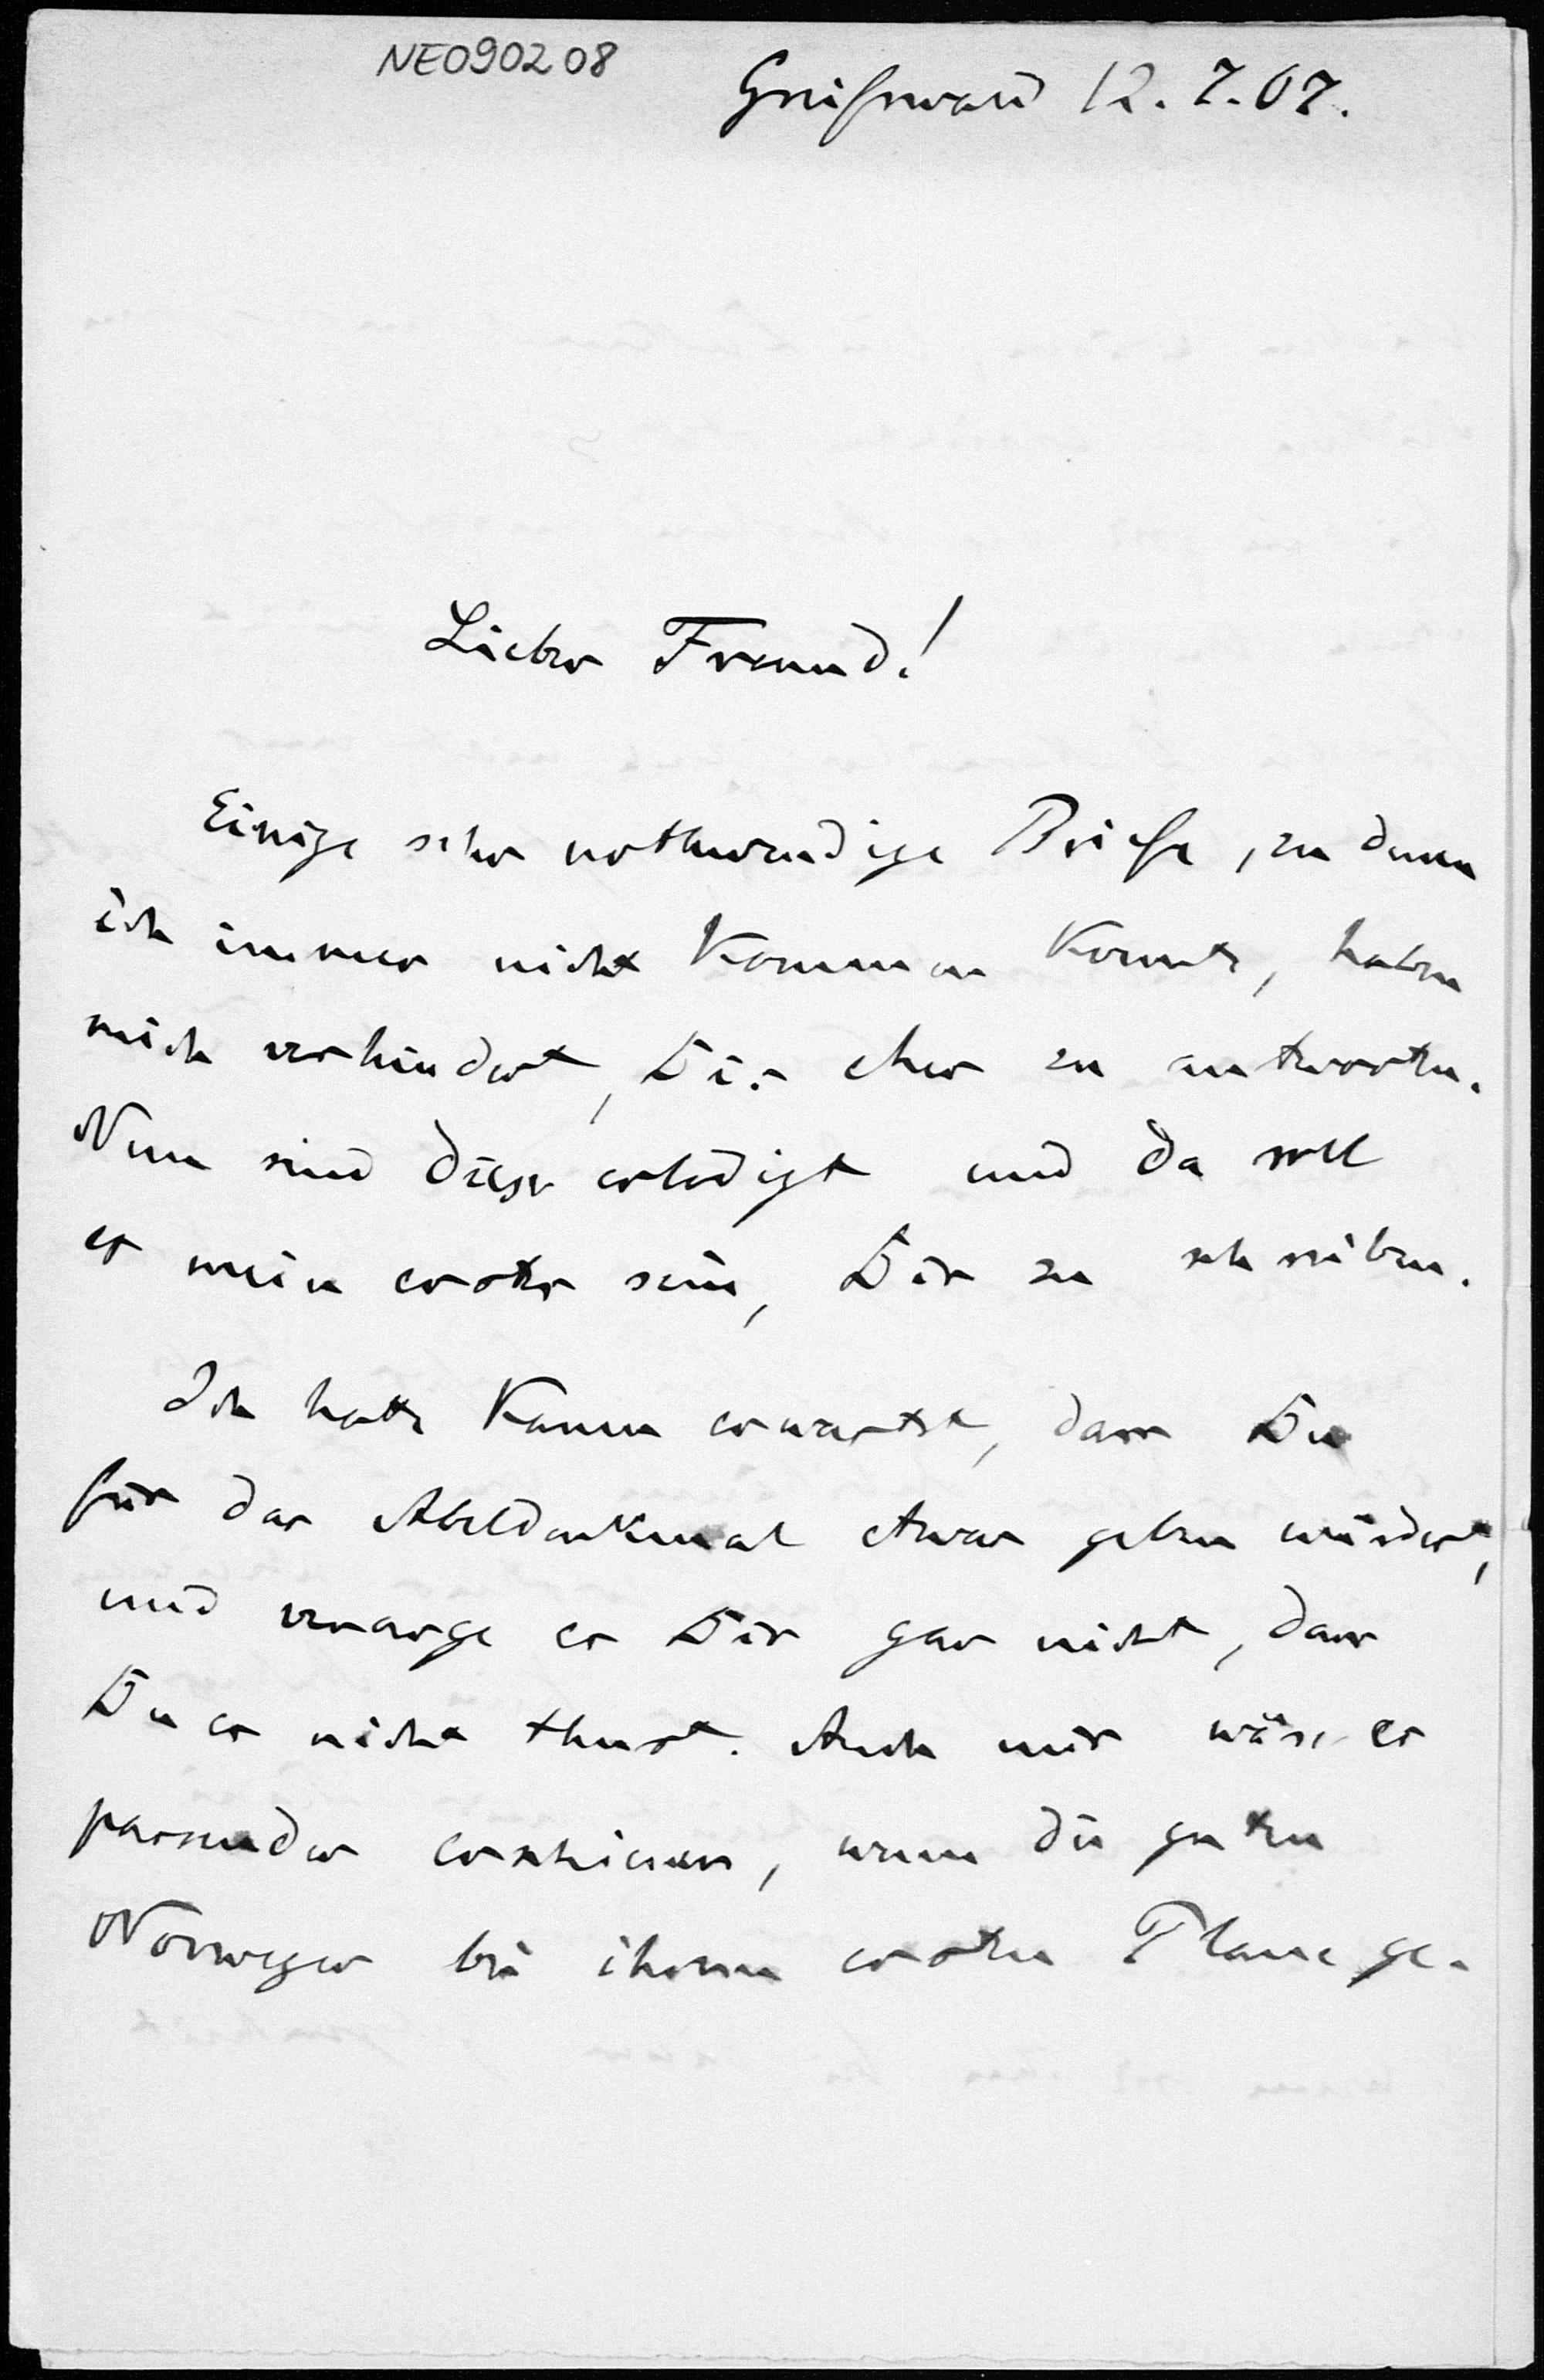 NE090208
Greifswald 12.7.07.
Lieber Freund!
Einige sehr nothwendige Briefe, zu denen
ich immer nicht kommen konnte, haben
mich verhindert, Dir eher zu antworten.
Nun sind diese erledigt und da soll
es mein erstes sein, Dir zu schreiben.
Ich hatte kaum erwartet, dass Du
für das Abeldenkmal etwas geben würdest,
und verarge es Dir gar nicht, dass
Du es nicht thust. Auch mir wäre es
passender erschienen, wenn die guten
Norweger bei ihrem ersten Plane ge-